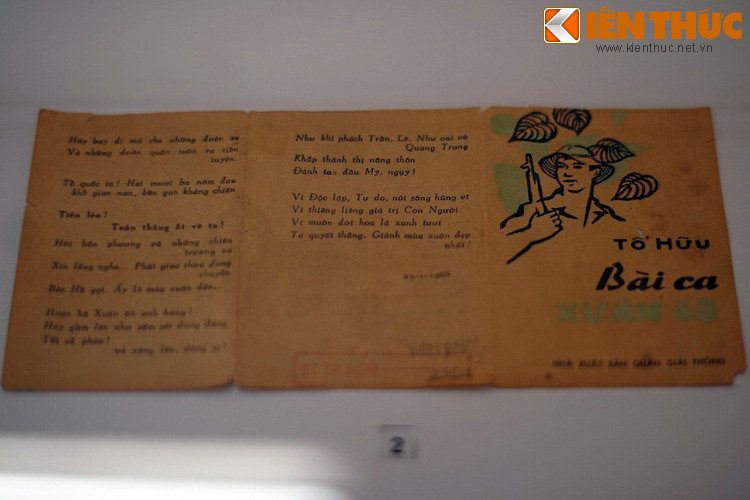 KIẾN THỨC
www.kienthuc.net.vn
Hãy bay đi mà che những đoàn xe
Và những đoàn quân tuôn ra tiền
tuyến.
Tổ quốc ta! Hai mươi ba năm đau
khổ gian nan, bền gan kháng chiến
Tiến lên!
Toàn thắng ắt về ta!
Hỡi bốn phương và những chiến
trường xa
Xin lắng nghe... Phút giao thừa đang
chuyển
Bác Hồ gọi. Ấy là mùa xuân đến.
Hoan hô Xuân 68 anh hùng!
Hãy gầm lên như sấm sét đùng đùng
Tất cả pháo!
và xông lên, dũng sĩ!
Như khí phách Trần, Lê. Như oai vũ
Quang Trung
Khắp thành thị nông thôn
Đánh tan đầu Mỹ, ngụy!
Vì Độc lập, Tự do, núi sông hùng vĩ
Vì thiêng liêng giá trị Con Người
Vì muôn đời hoa lá xanh tươi
Ta quyết thắng. Giành mùa xuân đẹp
nhất!
TỐ HỮU
Bài ca
XUÂN 68
NHÀ XUẤT BẢN QUÂN GIẢI PHÓNG
2